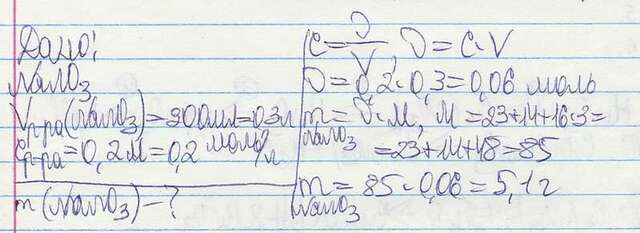 Дано:
NaNO₃
Vр-ра(NaNO₃)=300мл=0,3л
Cр-ра=0,2М=0,2 моль/л
m(NaNO₃)-?
C=ν/V, ν=C·V
ν=0,2·0,3=0,06 моль
m NaNO₃=ν·M, M=23+14+16·3=
=23+14+48=85
m NaNO₃=85·0,06=5,1г